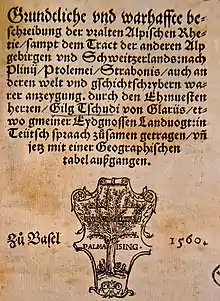 Grundtliche vnd warhaffte be-
schreibung der vralten Alpischen Rhe-
tie/sampt dem Tract der anderen Alp
gebirgen vnd Schweitzerlands: nach
Plinij Ptolemei/Strabonis/auch an
deren welt vnd gschichtschrybern wa-
rer anzeygung. durch den Ehrnuesten
herren/Gilg Tschudi von Glarüs/et-
wo gmeiner Eydgnossen Landuogt: in
Teütsch spraach züsamen getragen/vn̄
jez mit einer Geographischen
tabel außgangen.
PALMA ISING.
Zů Basel 1560.